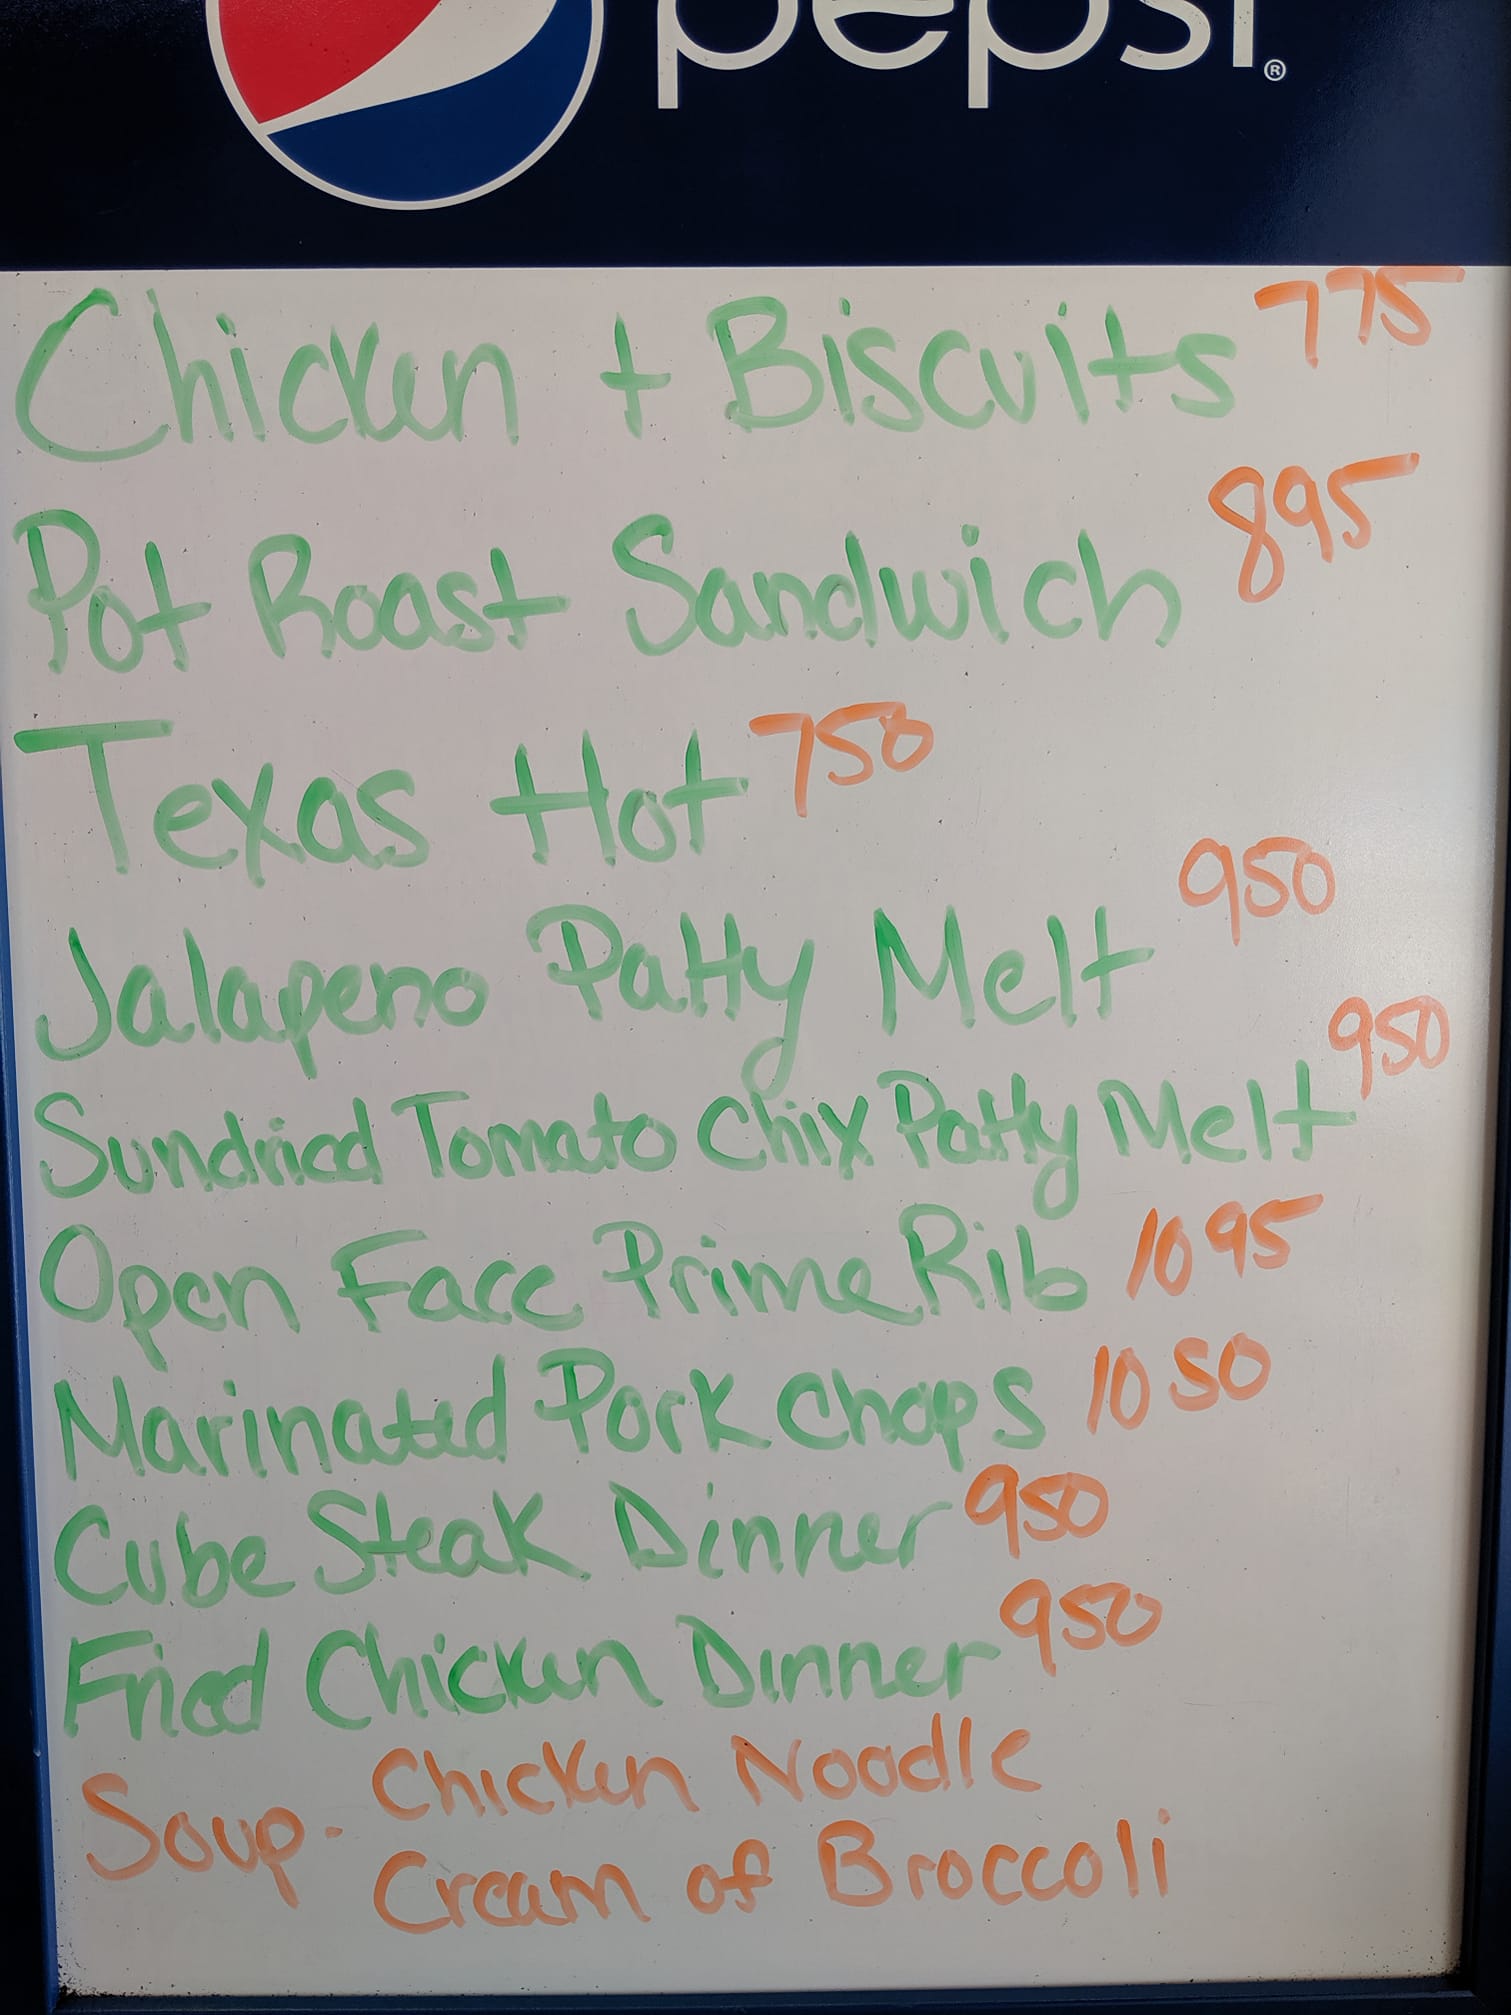 pepsi®
Chicken + Biscuits 775
Pot Roast Sandwich 895
Texas Hot 750
Jalapeno Patty Melt 950
Sundried Tomato Chix Patty Melt 950
Open Face Prime Rib 10 95
Marinated Pork Chops 10 50
Cube Steak Dinner 950
Fried Chicken Dinner 950
Soup - Chicken Noodle
Cream of Broccoli